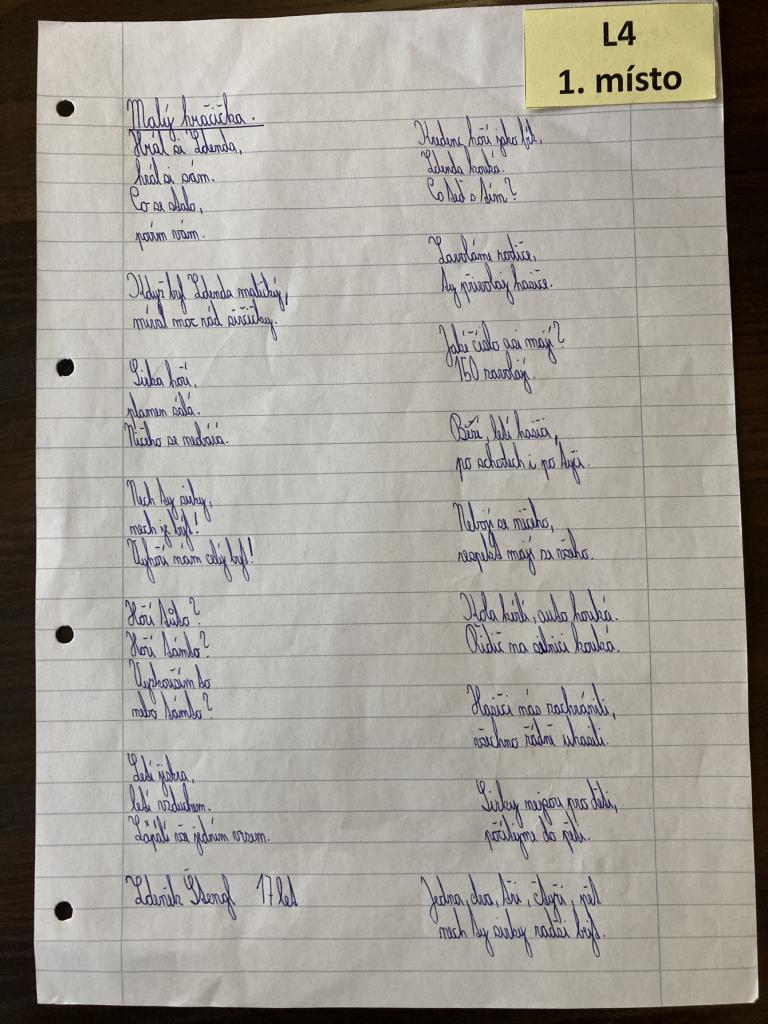 L4
1. místo
Malý hračička.
Hrál si Zdenda,
hrál si sám.
Co se stalo,
povím vám.
Když byl Zdenda maličký,
míval moc rád sirčičky.
Sirka hoří,
plamen sálá.
Ničeho se nebává.
Nech ty sirky,
nech je být!
Vyhoří nám celý byt!
Hoří túto?
Hoří támto?
Vyzkouším to
nebo támto?
Letí jiskra,
letí vzduchem.
Zapálí vše jedním vrzem.
Zdeněk Štengl 17 let
Kredenc hoří jako fík,
Zdenda kouká.
Co teď s tím?
Zavoláme rodiče,
ty přivolají hasiče.
Jaké číslo asi mají?
150 zavolají.
Běží, letí hasiči,
po schodech i po tyči.
Nebojí se ničeho,
respekt mají ze všeho.
Kola kvílí, auto houká.
Řidič na silnici kouká.
Hasiči nás zachránili,
všechno řádně uhasili.
Sirky nejsou pro děti,
počítejme do pěti.
Jedna, dva, tři, čtyři, pět
nech ty sirky radši být.